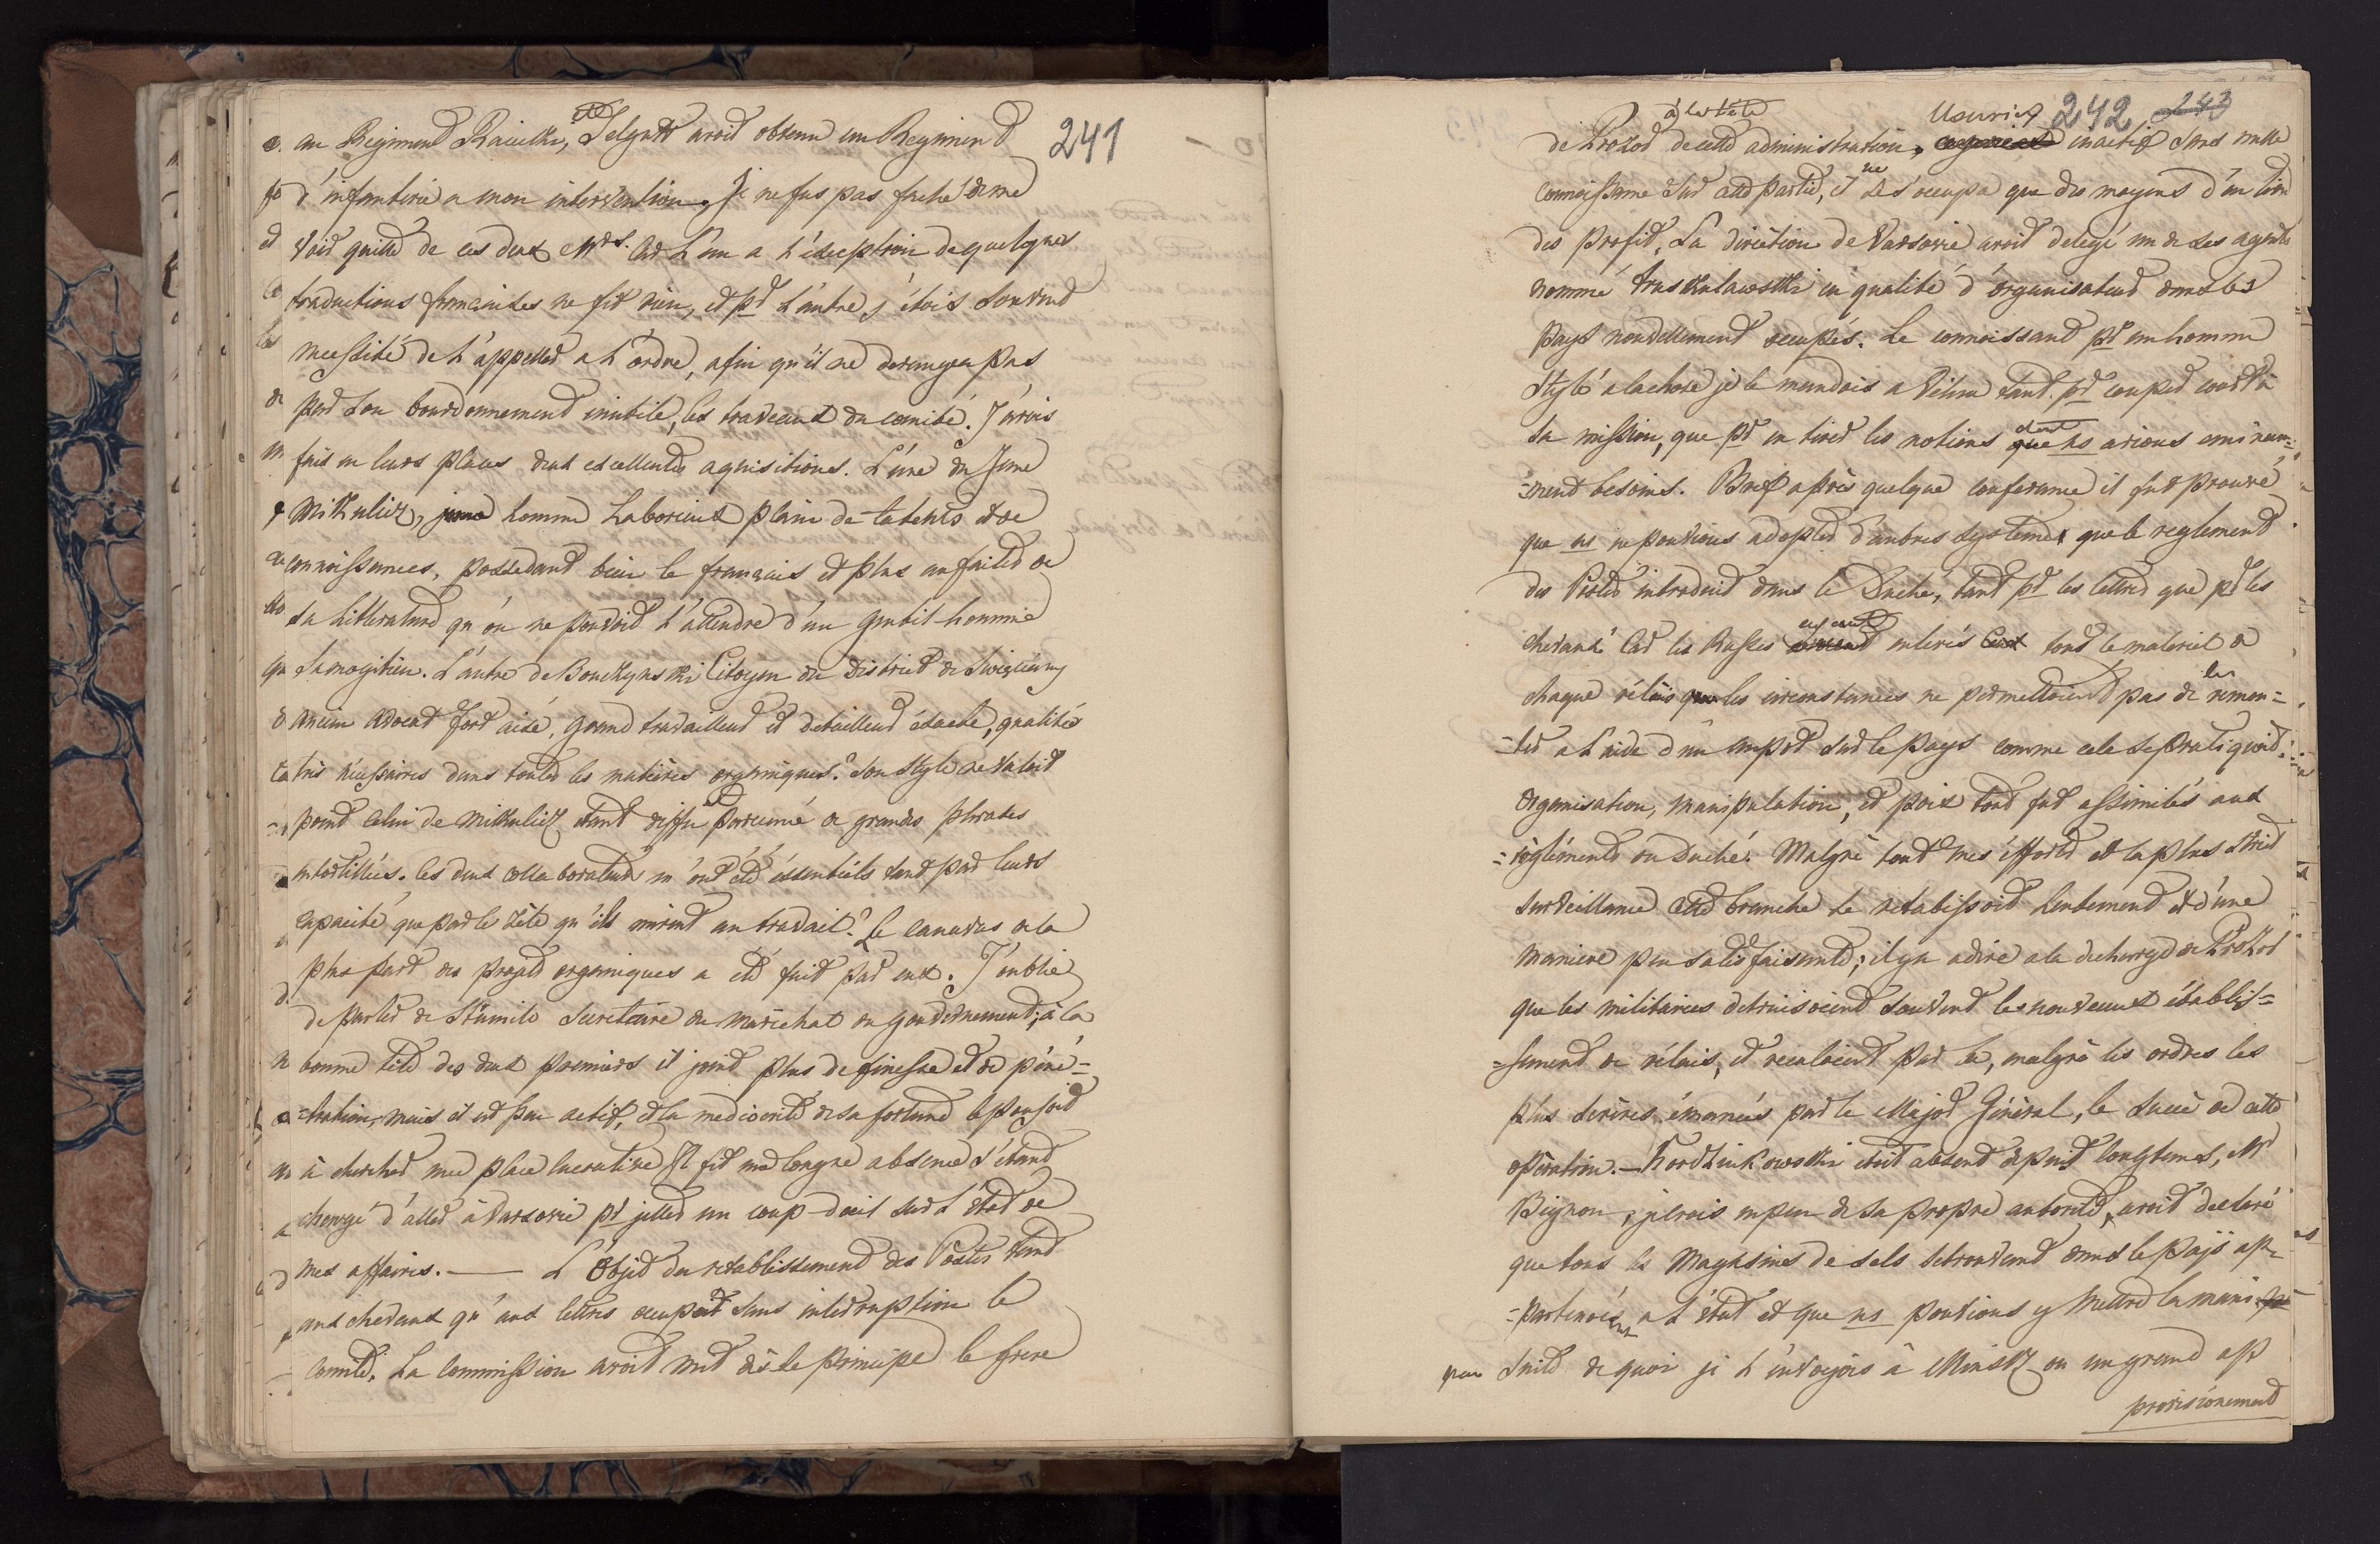 241
au Regiment Raiecki, et Zelgutt avoit obtenu un Regiment
d'infanterie a mon intervention, Je ne fus pas faché de me
voir quitte de ces deux Mrs. Car L'un a l'éxception de quelques
traductions francaises ne fit rien, et pr L'autre j'étois souvent
necessité de L'appeller a L'ordre, afin qu'il ne derangea pas
par son bourdonnement inutile, les traveaux du comité. J'avois
fait en leurs places deux excellentes aquisitions. L'une du Jeune
Mikulicz, jeune homme Laborieux plain de talents et de
connoissances, possedant bien le francais et plus au faite de
sa Litterature qu'on ne pouvoit L'attendre d'un gentil-homme
Samogitien. L'autre de Bouckynski Citoyen du District de Swięciany
ancien Avocat fort aisé, grand travailleur et detailleur éxacte, qualités
très nécéssaires dans toutes les matières organiques. Son style ne valoit
point celui de Mikulicz étant diffu et parsemé de grandes phrases
entortillées. Ces deux collaborateurs m'ont été éssentiels tant par leurs
capacité que par le zèle qu'ils mirent au travail. Le canevas de la
plus part des projets organiques a été fait par eux. J'oublie
de parler de Stumilo Secretaire du Maréchal du gouvernement; à la
bonne tête des deux premiers il joint plus de finesse et de péné=
=tration, mais il est peu actif, et la mediocrité de sa fortune le poussoit
à chercher une place lucrative. Il fit une longue absence s'étant
chargé d'aller à Varsovie pr jetter un coup-d'oeil sur L'état de
mes affaires. — L'Objet du retablissement des Postes tant
aux chevaux qu'aux lettres occupoit sans interruption le
comité. La commission avoit mit dès le principe le frere
242 243
de Prozor à la tête de cette administration, Usurier inactif sans nulle
connoissance sur cette partie, il ne s'occupa que des moyens d'en tirer
des profit. La diréction de Varsovie avoit delegé un de ses agents
nommé Truskulawski en qualité d'organisateur dans les
pays nouvellement occupés. Le connoissant pr un homme
stylé a la chose je le mandois a Vilna tant pr couper court à
sa mission, que pr en tirer les notions dont ns avions eminem=
=ment besoins. Bref après quelque conferance il fut prouvé
que ns ne pouvions adopter d'autres systemes que le reglement
des Postes introduit dans le Duché, tant pr les lettres que pr les
chevaux. Car les Russes ayant enlevés tout le materiel de
chaque rélais les circonstances ne permettoient pas de les remon=
=ter a L'aide d'un impot sur le pays comme cela se pratiquoit.
Organisation, manipulation, et poix tout fut assimilés aux
=règléments du Duché. Malgré tout mes éfforts et la plus strict
surveillance cette branche se retablissoit lentement et d'une
maniere peu satisfaisante; il y a adire a la décharge de Prozor
que les militaires detruisoient souvent les nouveaux établis=
=sement de rélais, et reculoient par la, malgré les ordres les
plus sevères émanés par le Major Général, le succè de cette
opération. — Kordzinkowski étoit absent depuis longtems, Mr
Bignon, je crois un peu de sa propre autorité, avoit declaré
que tous les Magasins de sels se trouvant dans le pays ap=
=partenoient a L'état et que ns pouvions y mettre la main
Suite de quoi je L'envoyois à Minsk ou un grand ap
provisionement